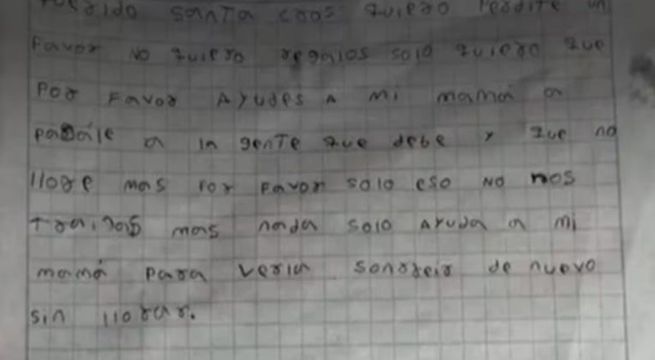 Querido santa cros quiero pedirte un
Favor NO quiero regalos solo quiero que
Por Favor Ayudes A mi mamá a
pagale a la gente que debe y que no
llore mas Por Favor solo eso NO nos
traigas mas nada solo Ayuda a mi
mamá para verla sonrreir de nuevo
sin llorar.